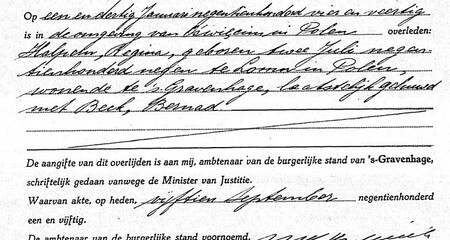 Op een en dertig Januari negentienhonderd vier en veertig
is in de omgeving van Oswiecim in Polen overleden:
Halpern, Regina, geboren twee Juli negen-
tienhonderd negen te in Polen,
wonende te 's Gravenhage, laatstelijk gehuwd
met Beck, Bernad
De aangifte van dit overlijden is aan mij, ambtenaar van de burgerlijke stand van 's-Gravenhage,
schriftelijk gedaan vanwege de Minister van Justitie.
Waarvan akte, op heden, vijftien September negentienhonderd
een en vijftig.
De ambtenaar van de burgerlijke stand voornoemd,